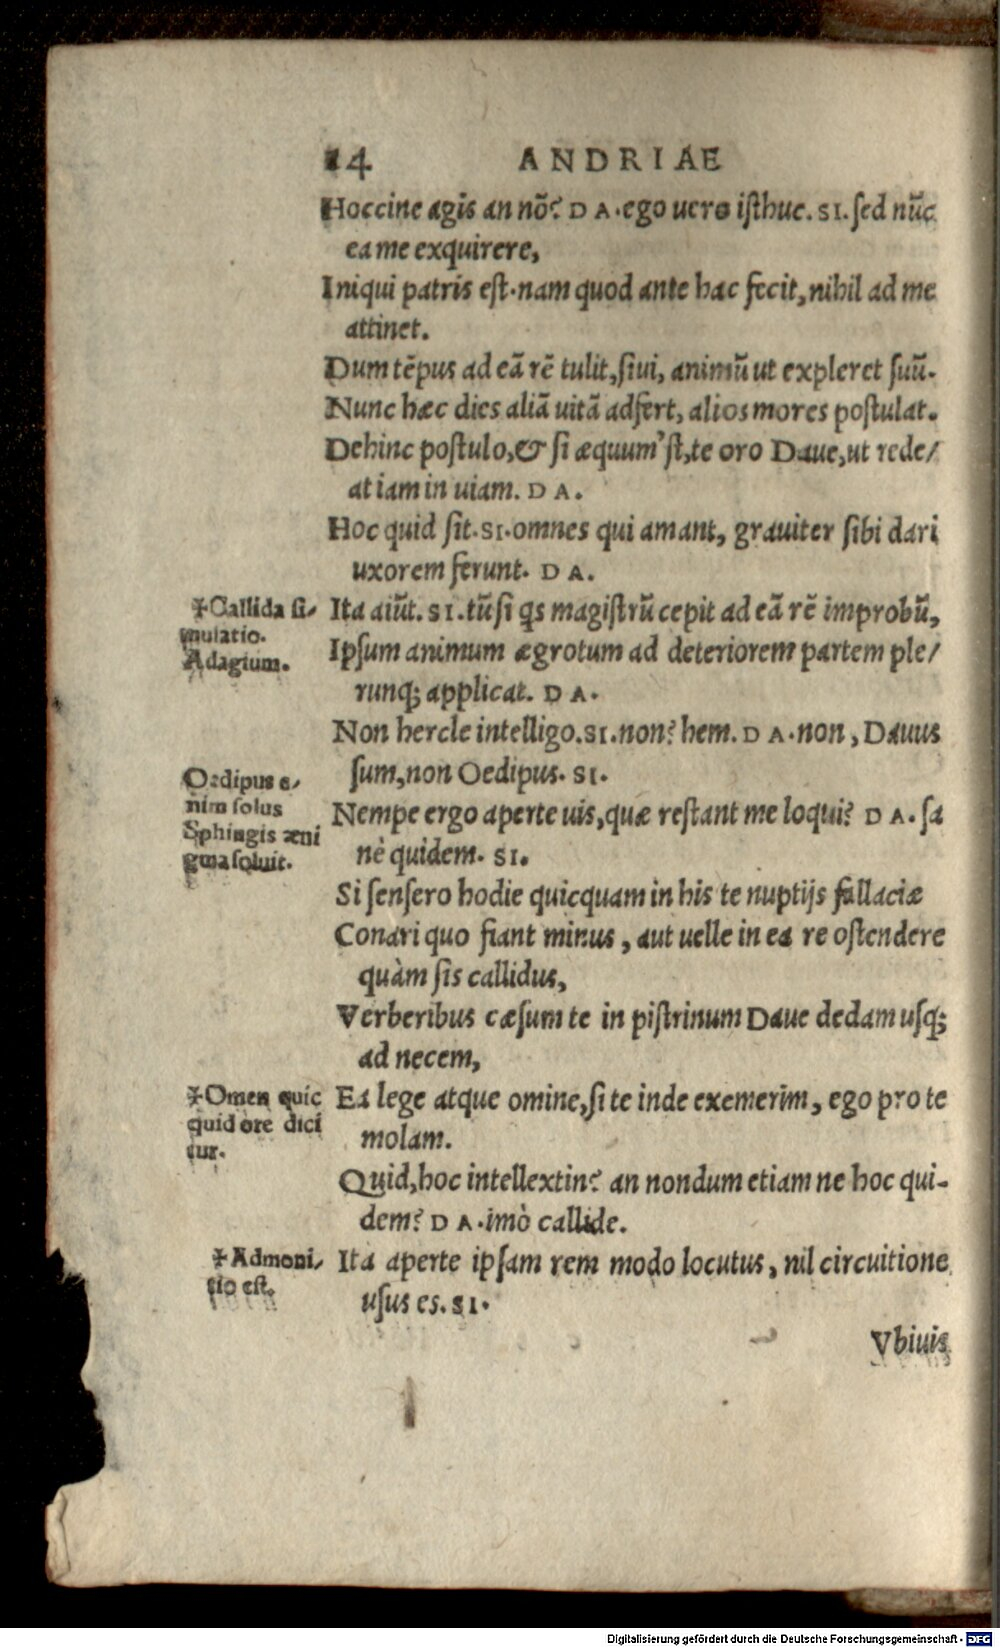 24 ANDRIAE
Hoccine agis an nõ? DA. ego uero isthuc. SI. sed nũc
ea me exquirere,
Iniqui patris est. nam quod ante hac fecit, nihil ad me
attinet.
Dum tẽpus ad eã rẽ tulit, siui, animũ ut expleret suũ.
Nunc hæc dies aliã uitã adfert, alios mores postulat.
Dehinc postulo, & si æquum'st, te oro Daue, ut rede/
at iam in uiam. DA.
Hoc quid sit. SI. omnes qui amant, grauiter sibi dari
uxorem ferunt. DA.
✠Callida si/
mulatio.
Adagium.
Ita aiũt. SI. tũ si qs magistrũ cepit ad eã rẽ improbũ,
Ipsum animum ægrotum ad deteriorem partem ple/
runq; applicat. DA.
Non hercle intelligo. SI. non? hem. DA. non, Dauus
sum, non Oedipus. SI.
Oedipus e/
nim solus
Sphingis æni
gma soluit.
Nempe ergo aperte uis, quæ restant me loqui? DA. sa
nè quidem. SI.
Si sensero hodie quicquam in his te nuptijs fallaciæ
Conari quo fiant minus, aut uelle in ea re ostendere
quàm sis callidus,
Verberibus cæsum te in pistrinum Daue dedam usq;
ad necem,
✠Omen quic
quid ore dici
tur.
Ea lege atque omine, si te inde exemerim, ego pro te
molam.
Quid, hoc intellextin? an nondum etiam ne hoc qui-
dem? DA. imò callide.
✠Admoni/
tio est.
Ita aperte ipsam rem modo locutus, nil circuitione
usus es. SI.
Vbiuis
Digitalisierung gefördert durch die Deutsche Forschungsgemeinschaft - DFG